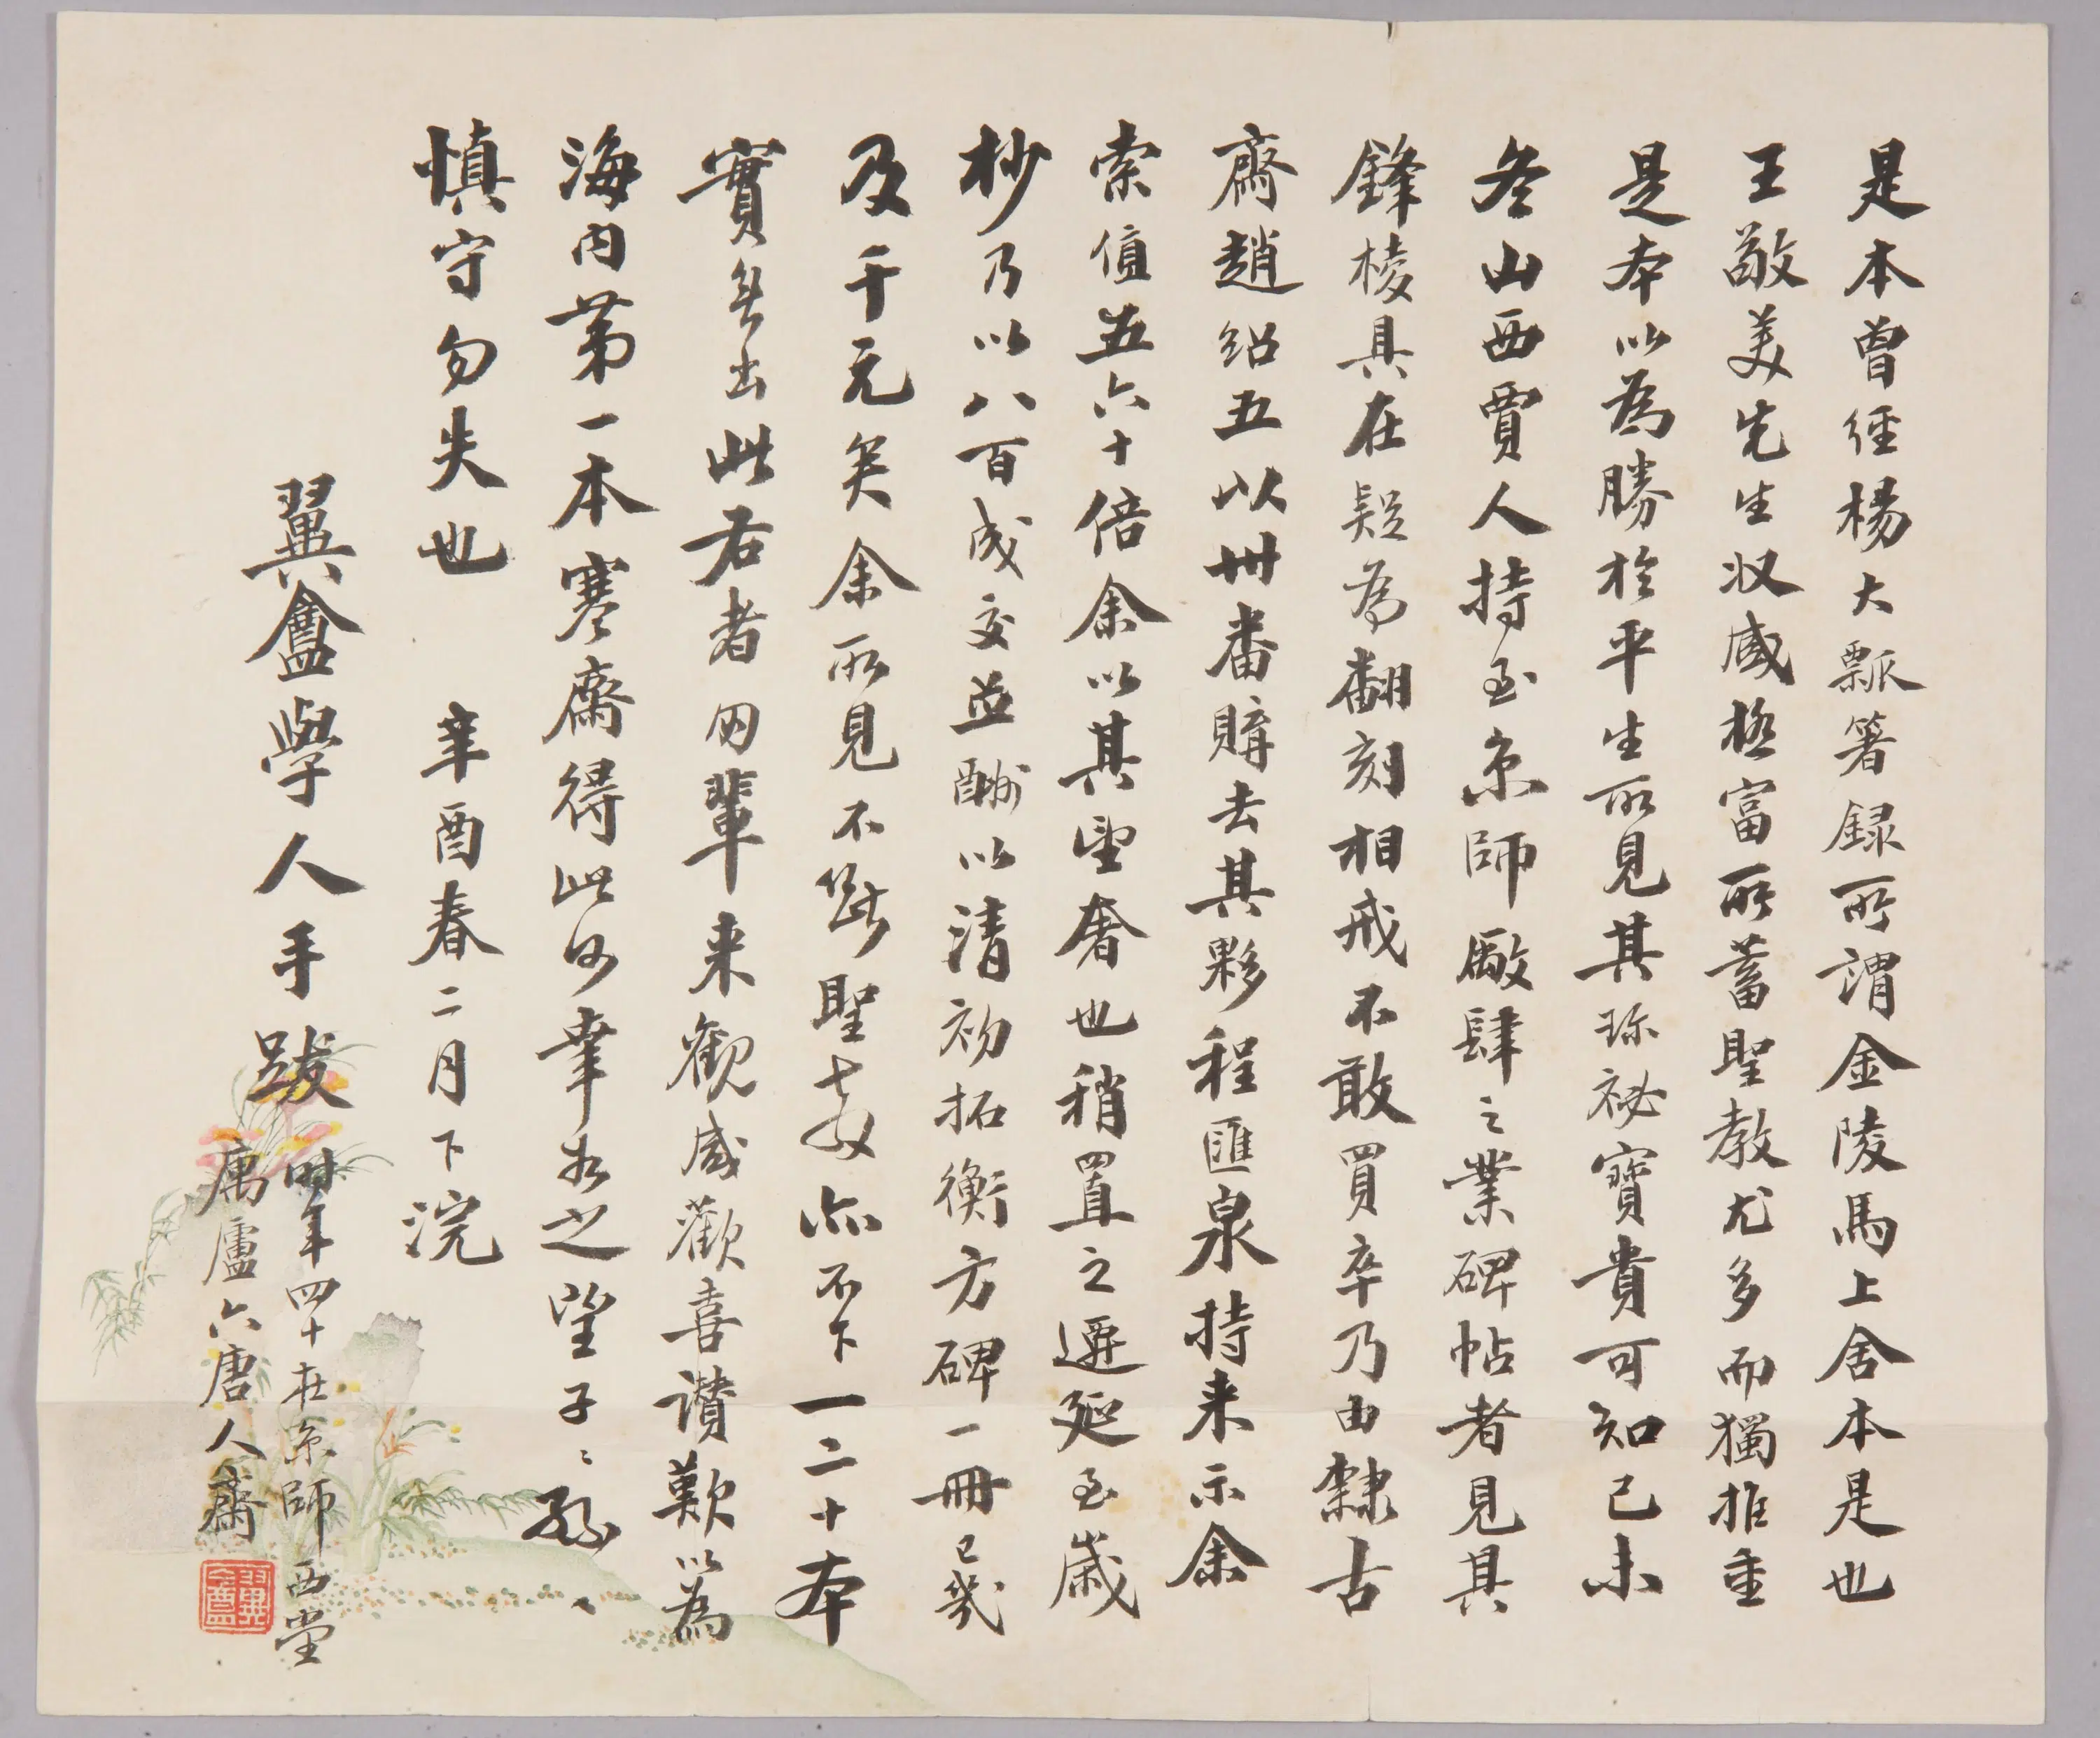 是本曾經楊大瓢箸録所謂金陵馬上舍本是也
王敬美先生収咸極富所蓄聖教尤多而獨推重
是本以為勝於平生所見其珎祕寶貴可知己未
冬山西賈人持至京師廠肆之業碑帖者見其
鋒棱具在疑為翻刻相戒不敢買卒乃由隸古
齋趙紹五以卅番購去其夥程匯泉持来示余
索值五六十倍余以其望奢也稍置之遷延至歲
杪乃以八百成交並酬以清初拓衡方碑一冊已幾
及千元矣余所見不斷聖教亦不下一二十本
實無出此右者同輩来觀咸歡喜讃歎以為
海内第一本寒齋得此何幸如之望子〻孫〻
慎守勿失也 辛酉春二月下浣
翼盦學人手跋
時年四十在京師西堂
寓廬六唐人齋
翼盦